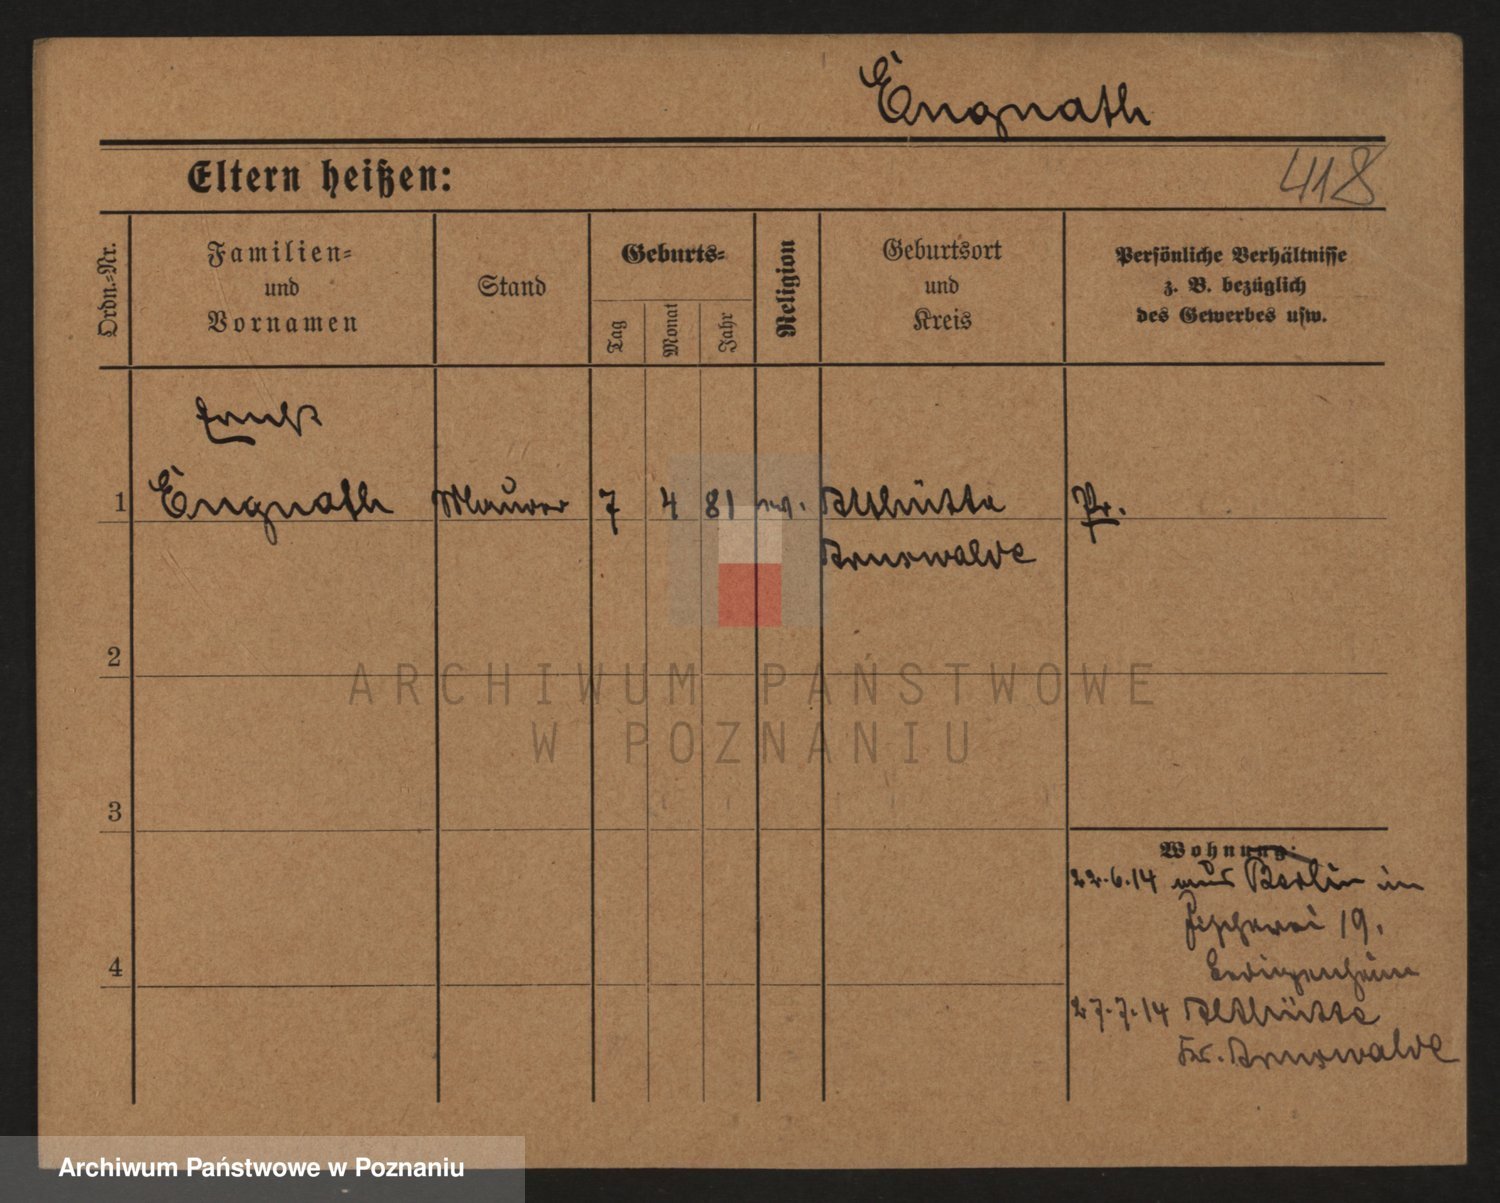 Engnath
Eltern heißen:
418
Ordn.-Nr.
Familien-
und
Vornamen
Stand
Geburts-
Tag
Monat
Jahr
Religion
Geburtsort
und
Kreis
Persönliche Verhältnisse
z. B. bezüglich
des Gewerbes usw.
Ernst
1 Engnath Maurer 7 4 81 ev. Althütte Pr.
Arnswalde
2
3
4
Wohnung:
22.6.14 aus Berlin in
Fischerei 19.
Ledigenheim
27.7.14 Althütte
Kr. Arnswalde
ARCHIWUM PAŃSTWOWE
W POZNANIU
Archiwum Państwowe w Poznaniu